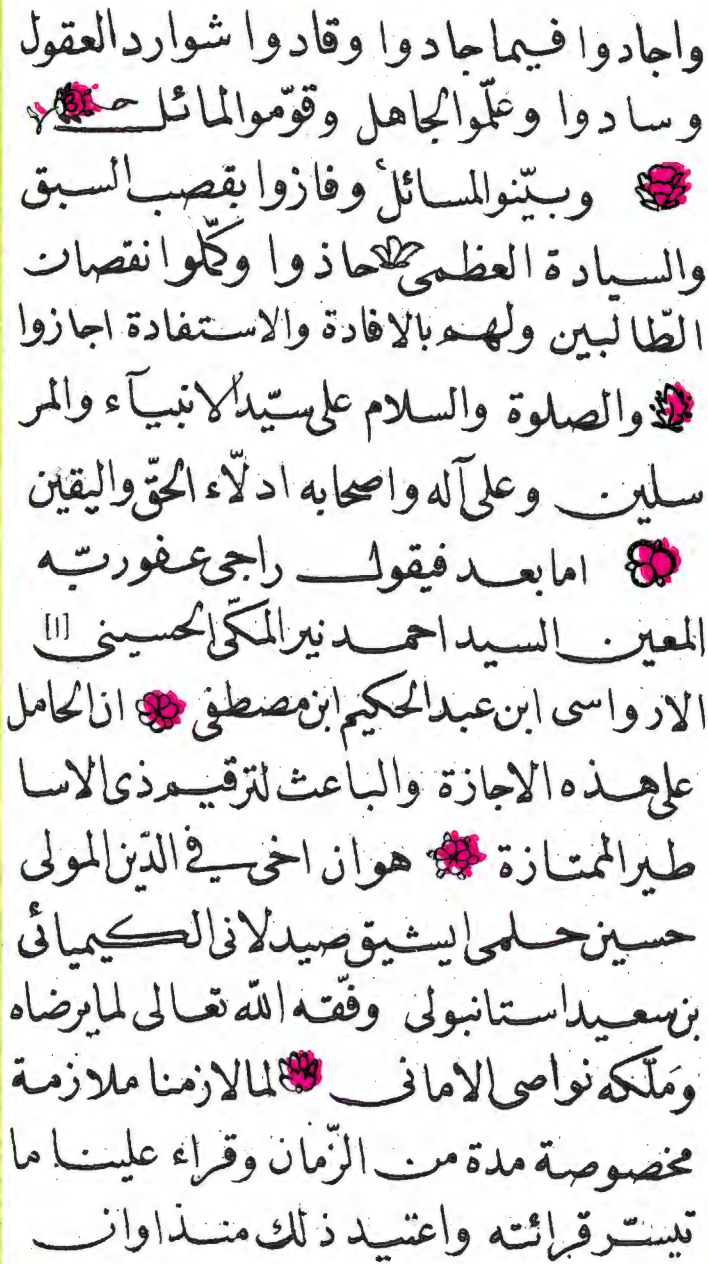 واجادوا فيما جادوا وقادوا شوارد العقول
وسادوا وعلّموالجاهل وقوّموالمائل
وبيّنوالمسائل وفازوا بقصب السبق
والسيادة العظمى حاذوا وكمّلوا نقصان
الطّالبين ولهم بالافادة والاستفادة اجازوا
والصلوة والسلام على سيّد الانبيآء والمر
سلين وعلى آله واصحابه ادلّاء الحقّ واليقين
اما بعد فيقول راجى عفو ربّه
المعين السيد احمد نير المكّى الحسينى [١]
الارواسى ابن عبد الحكيم ابن مصطفى ان الحامل
على هذه الاجازة والباعث لترقيم ذى الاسا
طير الممتازة هو ان اخى في الدّين المولى
حسين حلمى ايشيق صيدلانى الكيميائى
بن سعيد استانبولى وفّقه الله تعالى لما يرضاه
وَملّكه نواصى الامانى لما لازمنا ملازمة
مخصوصة مدة من الزّمان وقراء علينا ما
تيسّر قرائته واعتيد ذلك منذ اوان